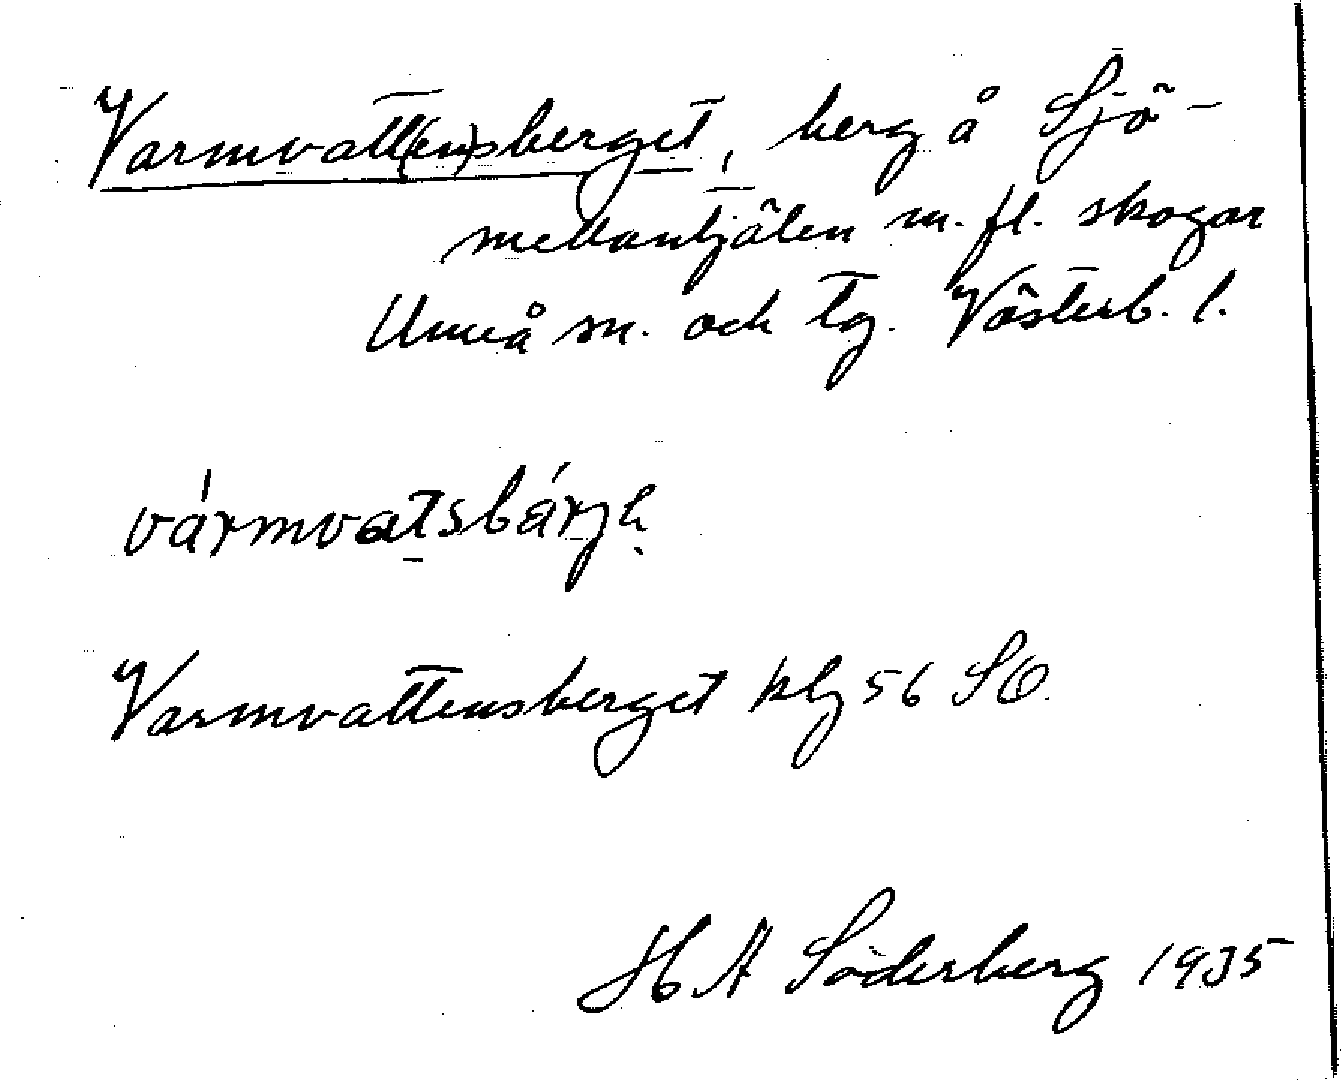 Varmvatt(en)sberget, berg å Sjö-
mellantjälen m. fl. skogar
Umeå sn. och tg. Västerb. l.
vármvatsbárjh
Varmvattensberget kbl 56 SO.
H A Söderberg 1935